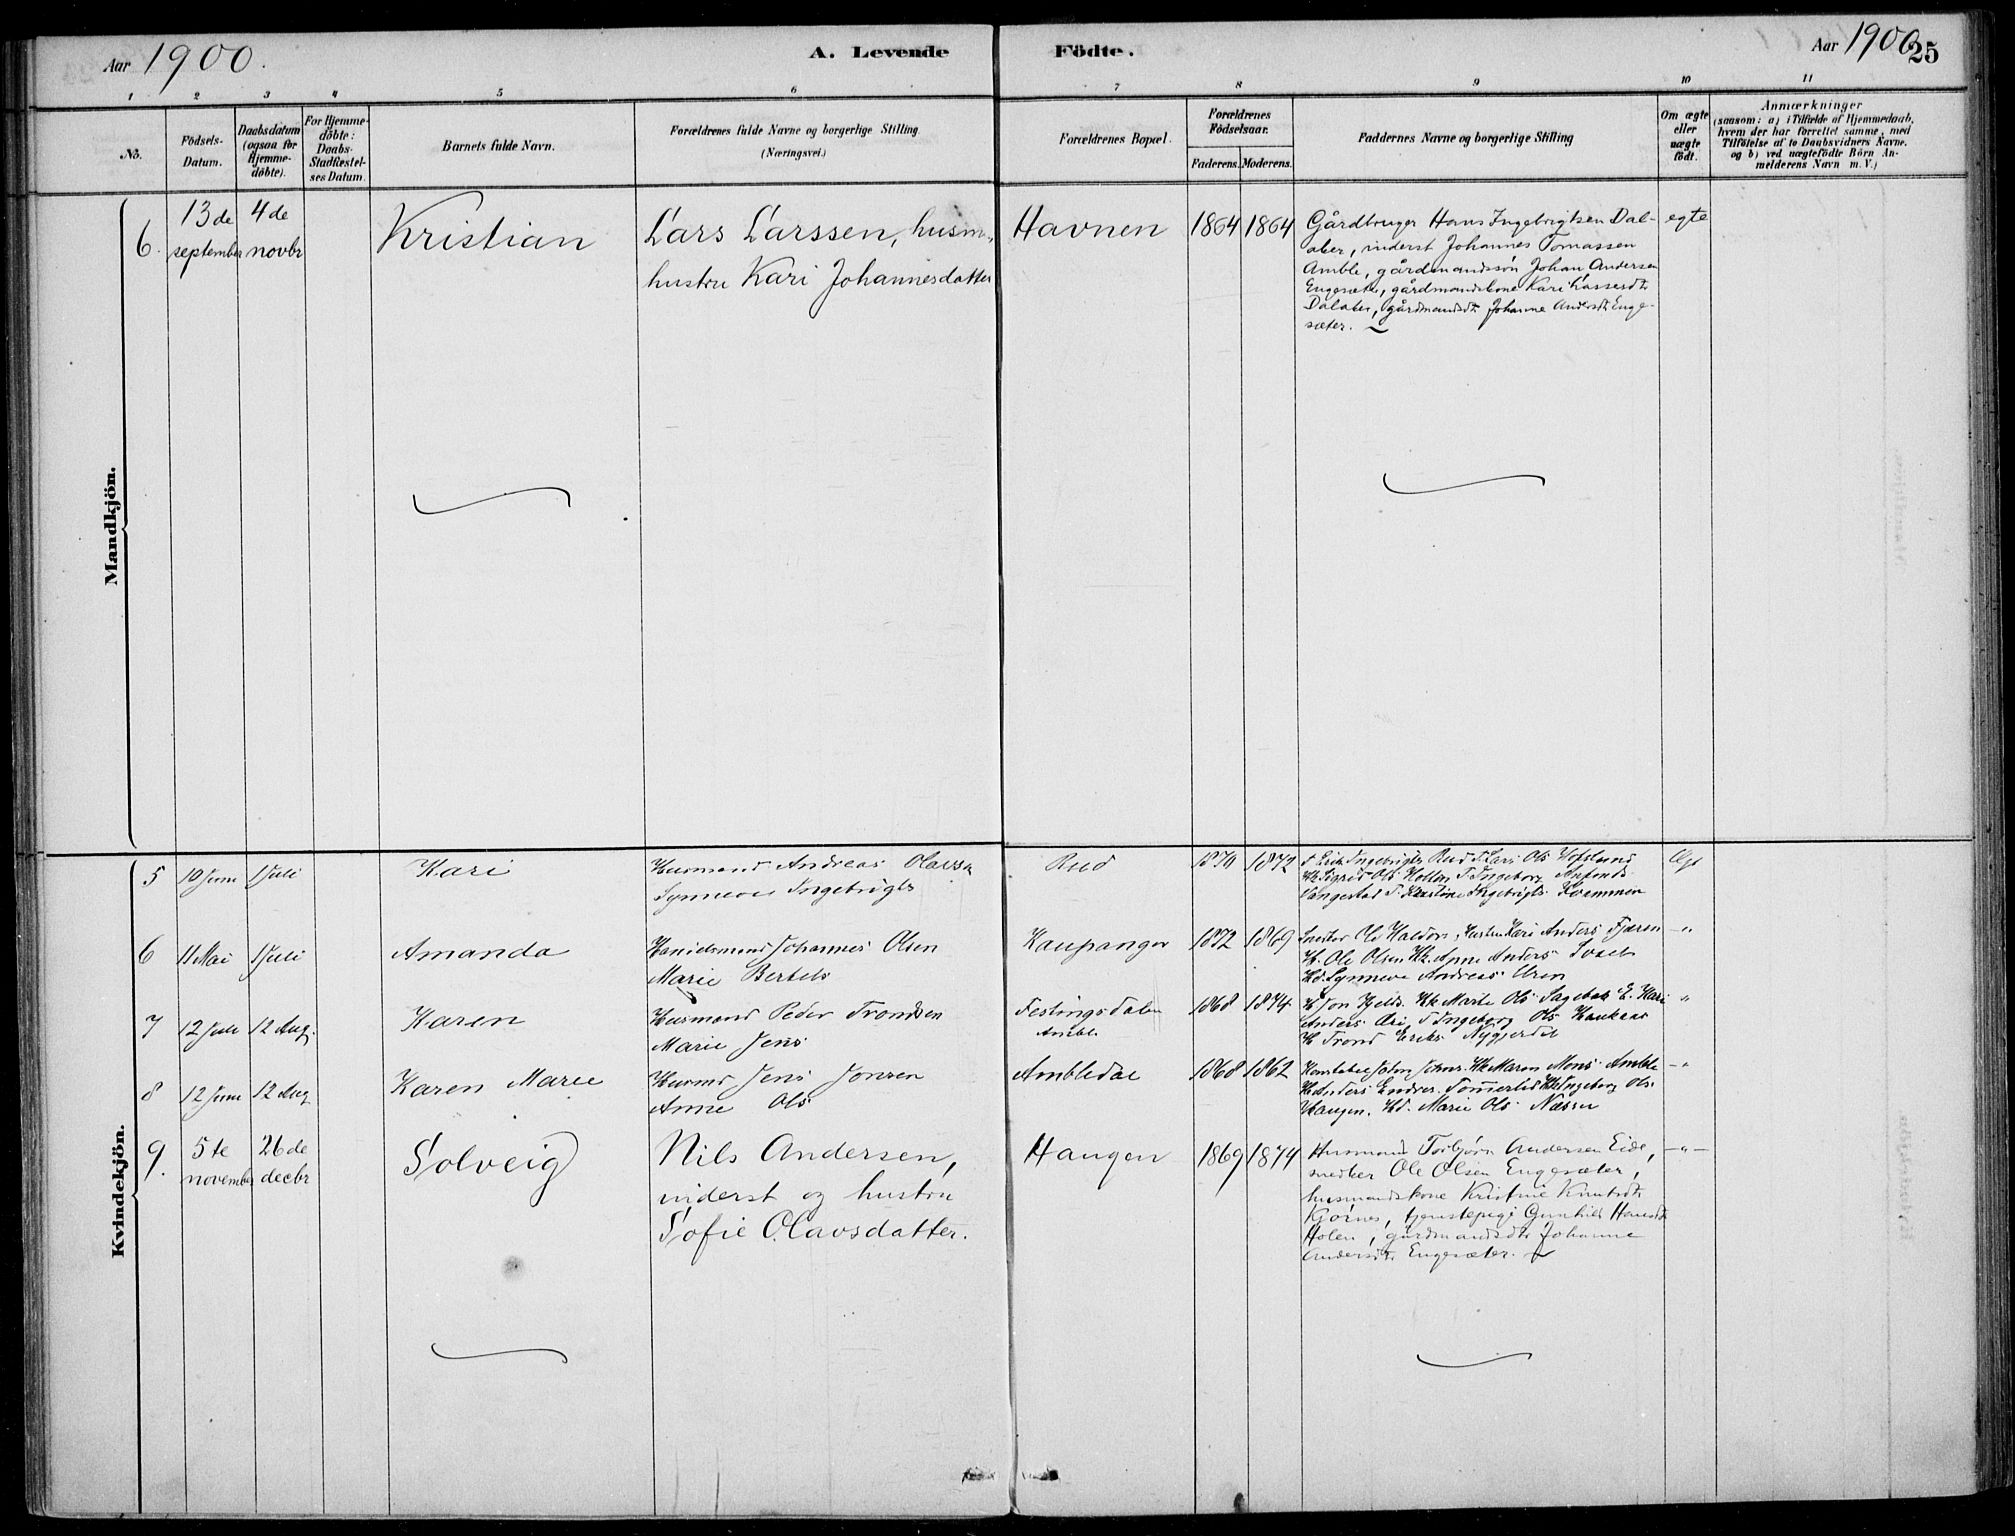 Aar 1900.
A. Levende Födte.
Aar 1900
25
1 2 3 4 5 6 7 8 9 10 11
No.
Födsels-
Datum.
Daabsdatum
(ogsaa for
Hjemme-
döbte).
For Hjemme-
döbte:
Daabs-
Stadfæstel-
ses Datum.
Barnets fulde Navn.
Forældrenes fulde Navne og borgerlige Stilling.
(Næringsvei.)
Forældrenes Bopæl.
Forældrenes
Födselsaar.
Faderens. Moderens.
Faddernes Navne og borgerlige Stilling
Om ægte
eller
uægte
födt.
Anmærkninger
(saasom: a) i Tilfælde af Hjemmedaab,
hvem der har forrettet samme, med
Tilföielse af to Daabsvidners Navne.
og b) ved uægtefödte Börn An-
melderens Navn m. V.)
Mandkjön.
6.
13de
september
4de
novbr
Kristian
Lars Larssen, husm.,
hustru Kari Johannesdatter
Havnen
1864 1864
Gårdbruger Hans Ingebrigtsen Dal-
aker, inderst Johannes Tomassen
Amble, gårdmandssön Johan Andersen
Engesæter, gårdmandskone Kari Lassesdt.
Dalaker, gårdmandsdt. Johanne Andersdt. Enge-
sæter.
egte
Kvindekjön.
5
10 Juni
1 Juli
Kari
Husmand Andreas Olavsen
Synneve Ingebrigts
Rud
1870 1872
Erik Ingebrigts Rud Lars Ols Hofslund
Hk Sigrid Ols Holten T. Ingeborg Anfinds
Vangestad T. Ingebrigts Kvammen
Ægt
6
11 Mai
1 Juli
Amanda
Handelsmand Johannes Olsen
Marie Bertels
Kaupanger
1872 1869
Ole Haldors, Hustru Kari Anders Fjæren
H. Ole Olsen Hk. Anne Anders
Synneve Andreas Uren
-"
7
12 Juli
12 Aug.
Karen
Husmand Peder Trondsen
Marie Jens
Festingsdalen
Amble
1868 1874
H Jon Hk Marte Ols Kari
Anders Eri T Ingeborg Ols Haukaas
H Trond Eriks Nygjerdet
"
8
12 Juni
12 Aug
Karen Marie
Husmd Jens Jonsen
Anne Ols
Ambledal
1868 1862
John Johns. Hk Maren Mons Amble
Anders Endres. Ingeborg Ols
Haugen. Marie Ols Næssen
-"
9.
5te
november
26de
decbr
Solveig
Nils Andersen,
inderst og hustru
Sofie Olavsdatter.
Haugen
1869 1874
Husmand Torbjørn Andersen Eide,
snedker Ole Olsen Engesæter,
husmandskone Kristine Knutsdt.
Gjørnes, tjenestepige Gunhild Hansdt.
Holen, gårdmandsdt. Johanne
Andersdt. Engesæter.
-"-